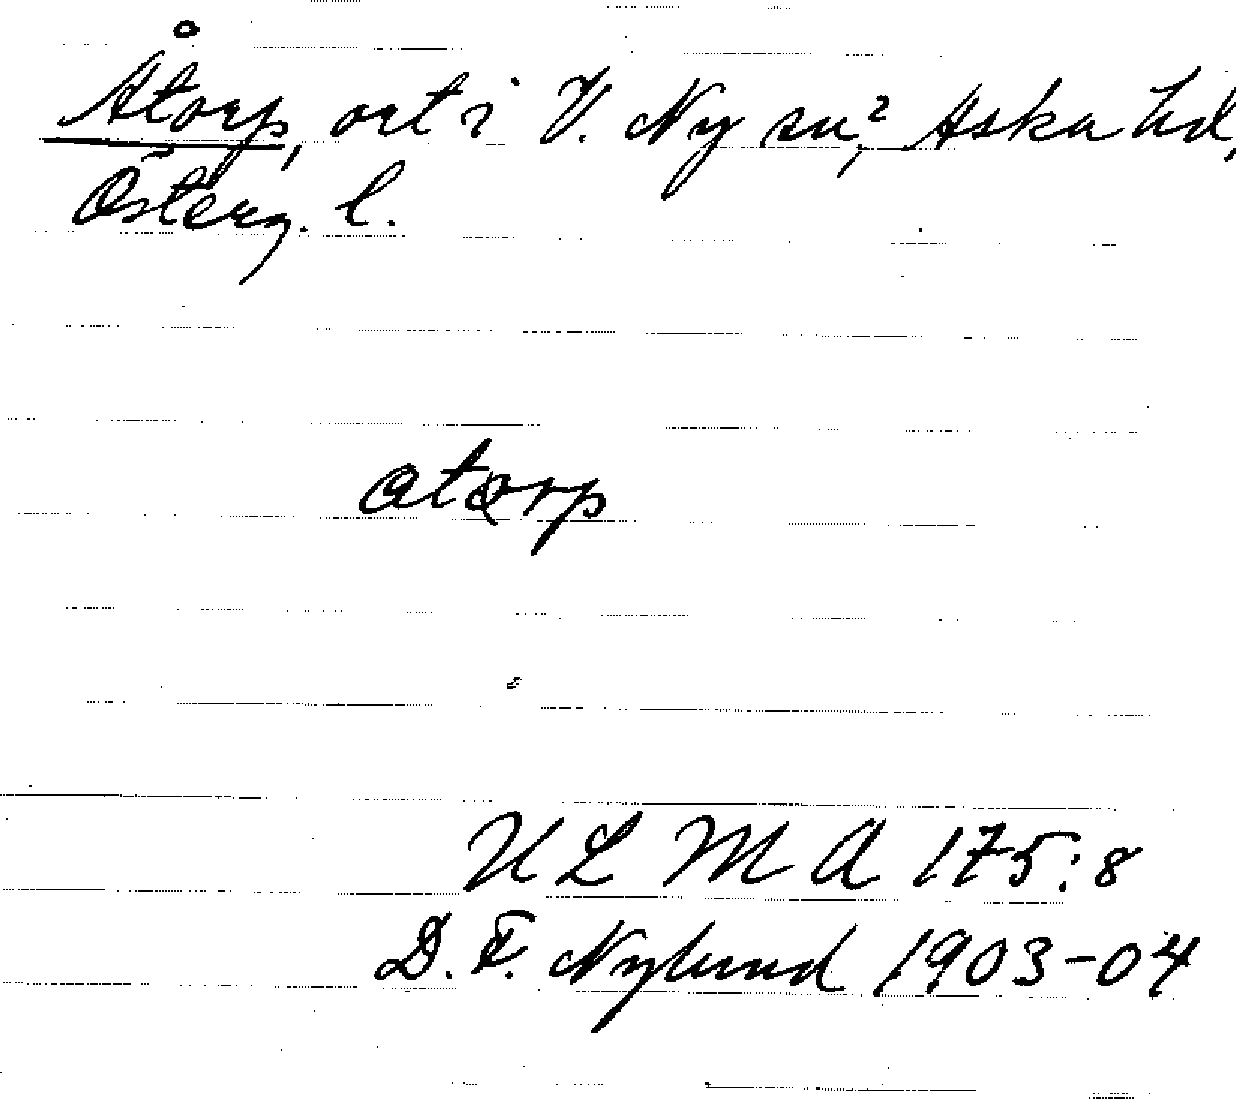 Åtorp, ort i V. Ny sn?, Aska hd,
Österg. l.
ULMA 175:8
D. F. Nylund 1903-04